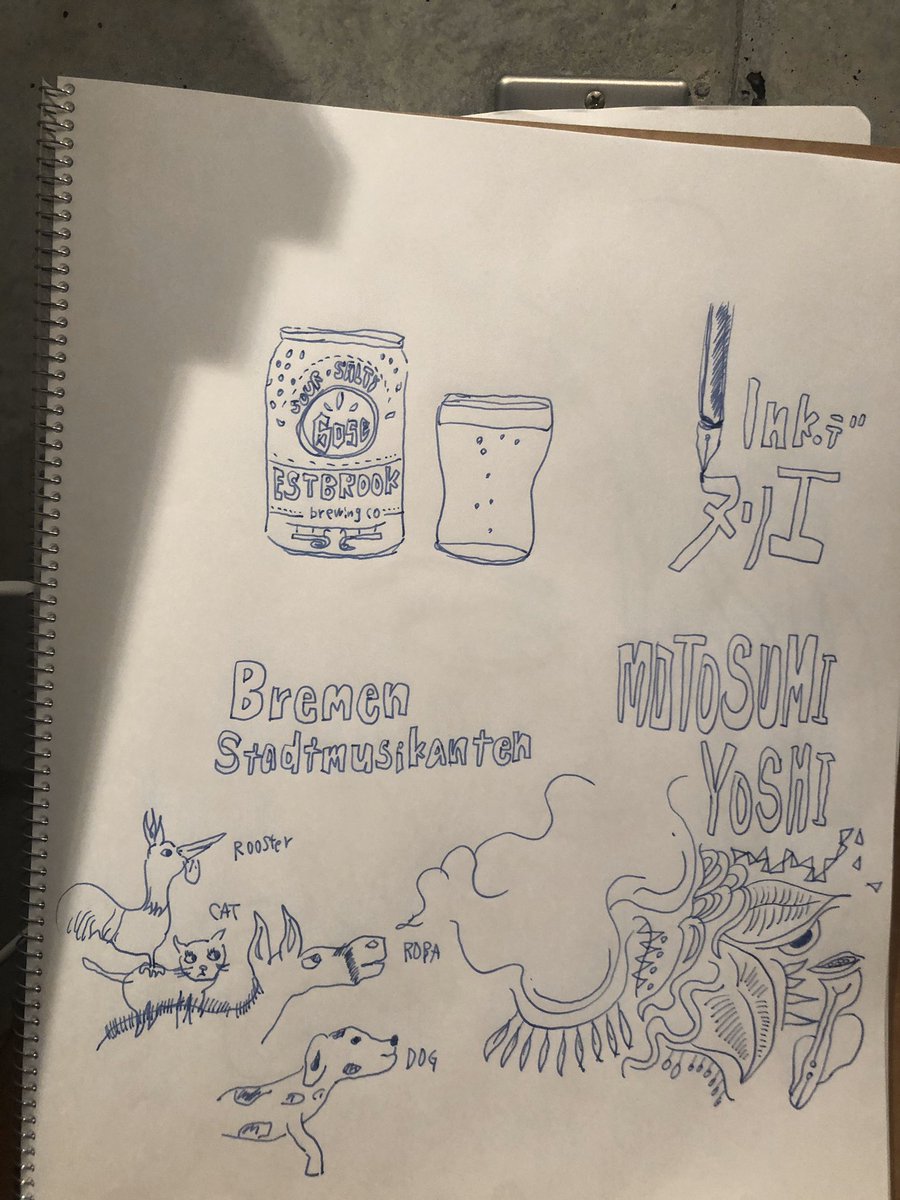 SOUR SALTY
GOSE
ESTBROOK
brewing co
Ink.デ
ヌリエ
Bremen
Stadtmusikanten
MOTOSUMI
YOSHI
Rooster
CAT
ROBA
DOG